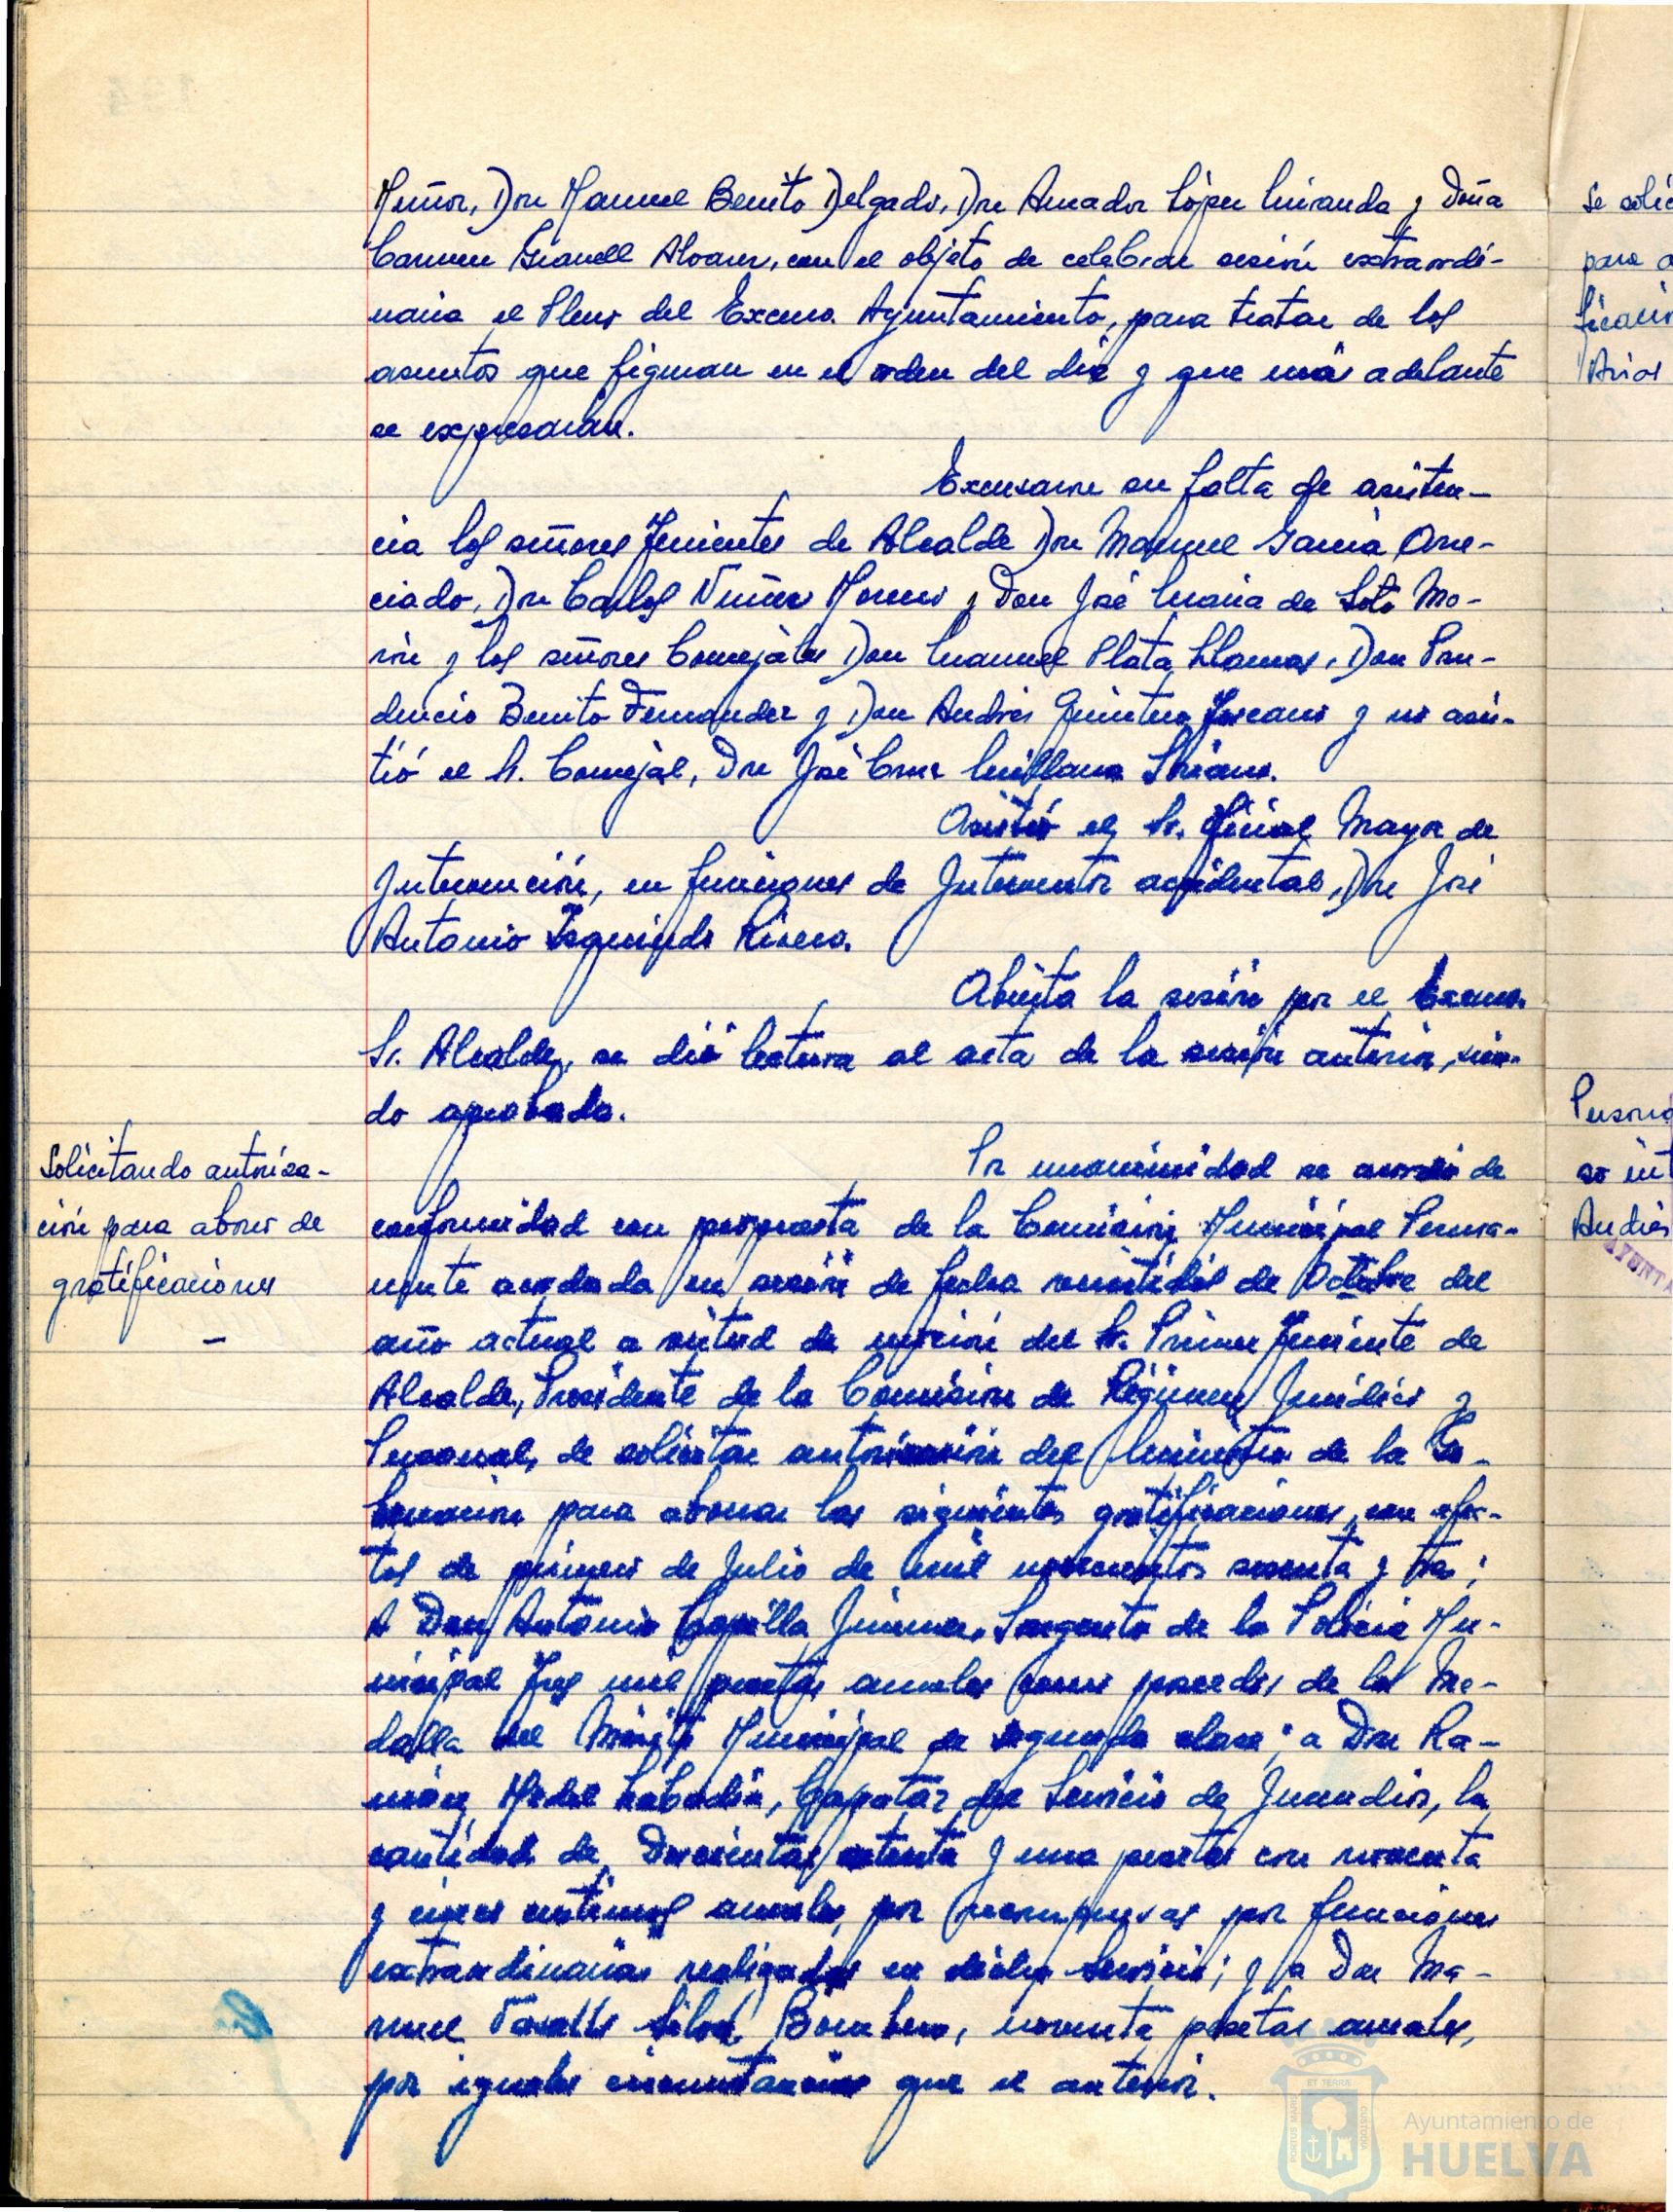 Muñoz, Don Manuel Benito Delgado, Don Amador López Miranda y Doña
Carmen Granell Alvarez, con el objeto de celebrar sesión extraordi-
naria el Pleno del Excmo. Ayuntamiento, para tratar de los
asuntos que figuran en el orden del dia y que más adelante
se expresarán.
Excusaron su falta de asisten-
cia los señores Tenientes de Alcalde Don Manuel Garcia
Don Carlos Nuñez Moreno y Don José Maria de Soto Mo-
rón y los señores Concejales Don Manuel Plata Llamas, Don Pru-
dencio Benito Fernandez y Don Andrés Quintero Toscano y no asis-
tió el Sr. Concejal, Don José Cruz Millana
Asistió el Sr. Oficial Mayor de
Intervención, en funciones de Interventor accidental, Don José
Antonio Izquierdo Rivera.
Abierta la sesión por el Excmo.
Sr. Alcalde, se dió lectura al acta de la sesión anterior, sien-
do aprobada.
Solicitando autoriza-
ción para abono de
gratificaciones
—
Por unanimidad se acordó de
conformidad con propuesta de la Comisión Municipal Perma-
nente acordada en sesión de fecha veintidós de Octubre del
año actual a virtud de moción del Sr. Primer Teniente de
Alcalde, Presidente de la Comisión de Régimen Juridico y
Personal, de solicitar autorización del Ministro de la Go-
bernación para abonar las siguientes gratificaciones, con efec-
tos de primero de Julio de mil novecientos sesenta y tres:
A Don Antonio Capilla Jimenez, Sargento de la Policia Mu-
nicipal Tres mil pesetas anuales como poseedor de la Me-
dalla del Mérito Municipal de segunda clase; a Don Ra-
món Medel Capataz del Servicio de Incendios, la
cantidad de Doscientas setenta y una pesetas con noventa
y cinco centimos anuales, por recompensas por funciones
extraordinarias realizadas en dicho Servicio; y a Don Ma-
nuel Silva, Bombero, noventa pesetas anuales,
por iguales circunstancias que el anterior.
Se solic
para a
ficació
Arias
Persona
so int
Andrés
AYUNTA
PORTUS MARIS ET TERRAE CUSTODIA
Ayuntamiento de
HUELVA